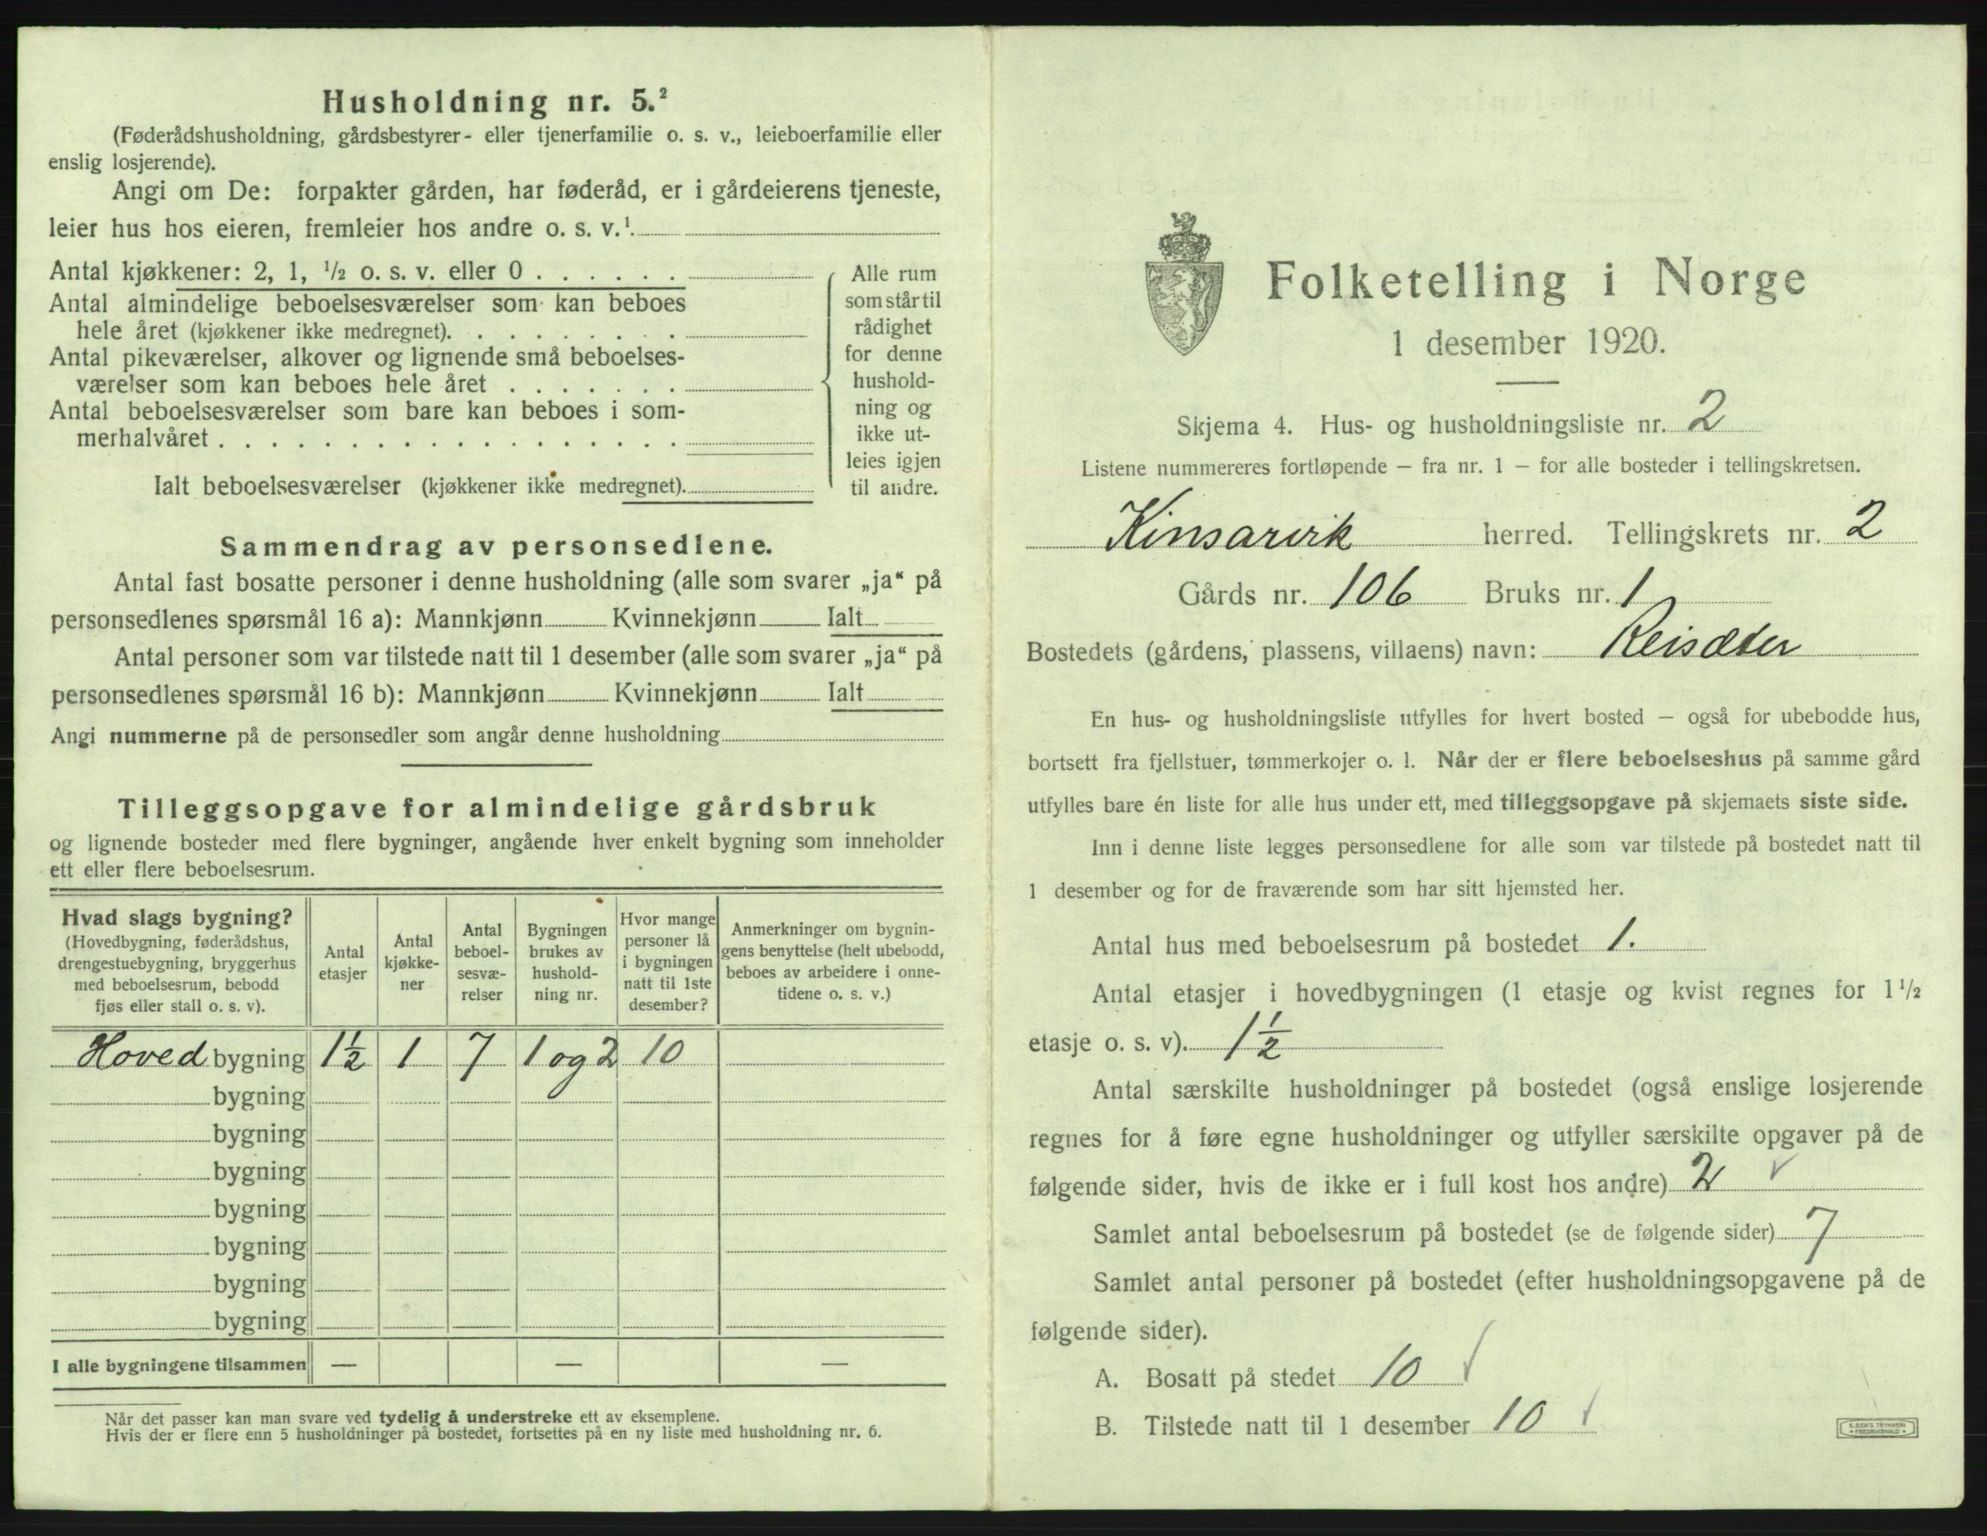 Husholdning nr. 5.²
(Føderådshusholdning, gårdsbestyrer- eller tjenerfamilie o. s. v., leieboerfamilie eller
enslig losjerende).
Angi om De: forpakter gården, har føderåd, er i gårdeierens tjeneste,
leier hus hos eieren, fremleier hos andre o. s. v.¹.
Antal kjøkkener: 2, 1, ¹/₂ o. s. v. eller 0 . . . . . .
Antal almindelige beboelsesværelser som kan beboes
hele året (kjøkkener ikke medregnet). . . . . . . . .
Antal pikeværelser, alkover og lignende små beboelses-
værelser som kan beboes hele året . . . . . . .
Antal beboelsesværelser som bare kan beboes i som-
merhalvåret . . . . . . . . . . . . . . . . . .
Ialt beboelsesværelser (kjøkkener ikke medregnet).
Alle rum
som står til
rådighet
for denne
hushold-
ning og
ikke ut-
leies igjen
til andre.
Sammendrag av personsedlene.
Antal fast bosatte personer i denne husholdning (alle som svarer „ja“ på
personsedlenes spørsmål 16 a): Mannkjønn Kvinnekjønn Ialt
Antal personer som var tilstede natt til 1 desember (alle som svarer „ja“ på
personsedlenes spørsmål 16 b): Mannkjønn Kvinnekjønn Ialt
Angi nummerne på de personsedler som angår denne husholdning
Tilleggsopgave for almindelige gårdsbruk
og lignende bosteder med flere bygninger, angående hver enkelt bygning som inneholder
ett eller flere beboelsesrum.
Hvad slags bygning?
(Hovedbygning, føderådshus,
drengestuebygning, bryggerhus
med beboelsesrum, bebodd
fjøs eller stall o. s. v).
Antal
etasjer
Antal
kjøkke-
ner
Antal
beboel-
sesvæ-
relser
Bygningen
brukes av
hushold-
ning nr.
Hvor mange
personer lå
i bygningen
natt til 1ste
desember?
Anmerkninger om bygnin-
gens benyttelse (helt ubebodd,
beboes av arbeidere i onne-
tidene o. s. v.)
Hoved bygning 1½ 1 7 1 og 2 10
bygning
bygning
bygning
bygning
bygning
bygning
bygning
I alle bygningene tilsammen — — —
Når det passer kan man svare ved tydelig å understreke ett av eksemplene.
Hvis der er flere enn 5 husholdninger på bostedet, fortsettes på en ny liste med husholdning nr. 6.
Folketelling i Norge
1 desember 1920.
Skjema 4. Hus- og husholdningsliste nr. 2
Listene nummereres fortløpende — fra nr. 1 — for alle bosteder i tellingskretsen.
Kinsarvik herred. Tellingskrets nr. 2
Gårds nr. 106 Bruks nr. 1
Bostedets (gårdens, plassens, villaens) navn: Reisæter
En hus- og husholdningsliste utfylles for hvert bosted — også for ubebodde hus,
bortsett fra fjellstuer, tømmerkojer o. l. Når der er flere beboelseshus på samme gård
utfylles bare én liste for alle hus under ett, med tilleggsopgave på skjemaets siste side.
Inn i denne liste legges personsedlene for alle som var tilstede på bostedet natt til
1 desember og for de fraværende som har sitt hjemsted her.
Antal hus med beboelsesrum på bostedet 1.
Antal etasjer i hovedbygningen (1 etasje og kvist regnes for 1¹/₂
etasje o. s. v). 1½
Antal særskilte husholdninger på bostedet (også enslige losjerende
regnes for å føre egne husholdninger og utfyller særskilte opgaver på de
følgende sider, hvis de ikke er i full kost hos andre) 2 ✓
Samlet antal beboelsesrum på bostedet (se de følgende sider) 7
Samlet antal personer på bostedet (efter husholdningsopgavene på de
følgende sider).
A. Bosatt på stedet 10 ✓
B. Tilstede natt til 1 desember 10 ✓